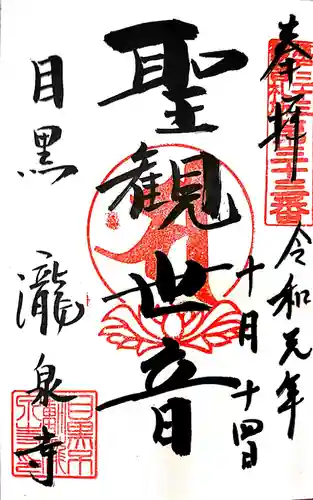 奉拝
令和元年
十月十四日
聖観世音
目黒
瀧泉寺